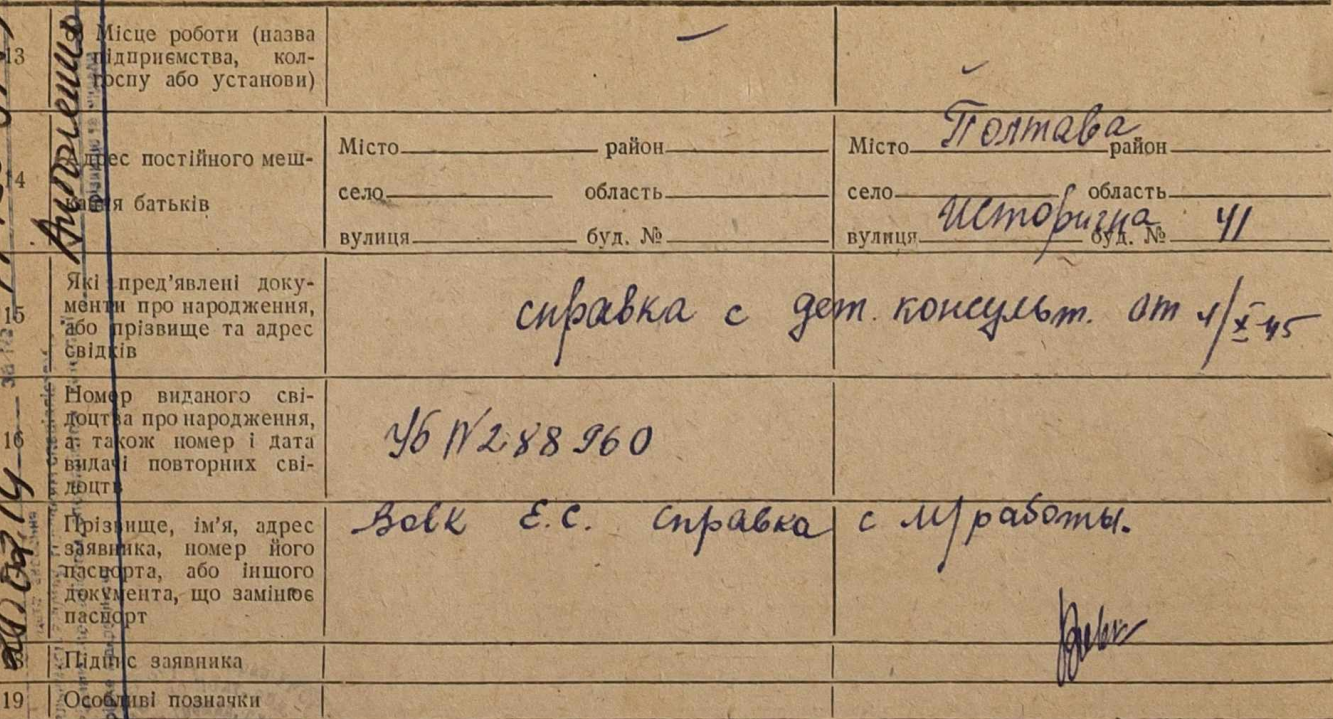 13 Місце роботи (назва
підприємства, кол-
госпу або установи) —
Адрес постійного меш-
кання батьків
Місто район
село область
вулиця буд. №
Місто Полтава район
село область
вулиця Исторична буд. № 41
15 Які пред'явлені доку-
менти про народження,
або прізвище та адрес
свідків
справка с дет. консульт. от 1/X-45
16 Номер виданого сві-
доцтва про народження,
а також номер і дата
видачі повторних сві-
доцтв
УБ N288960
Прізвище, ім'я, адрес
заявника, номер його
паспорта, або іншого
документа, що замінює
паспорт
Вовк Е.С. справка с м/работы.
Підпис заявника
Вовк
19 Особливі позначки